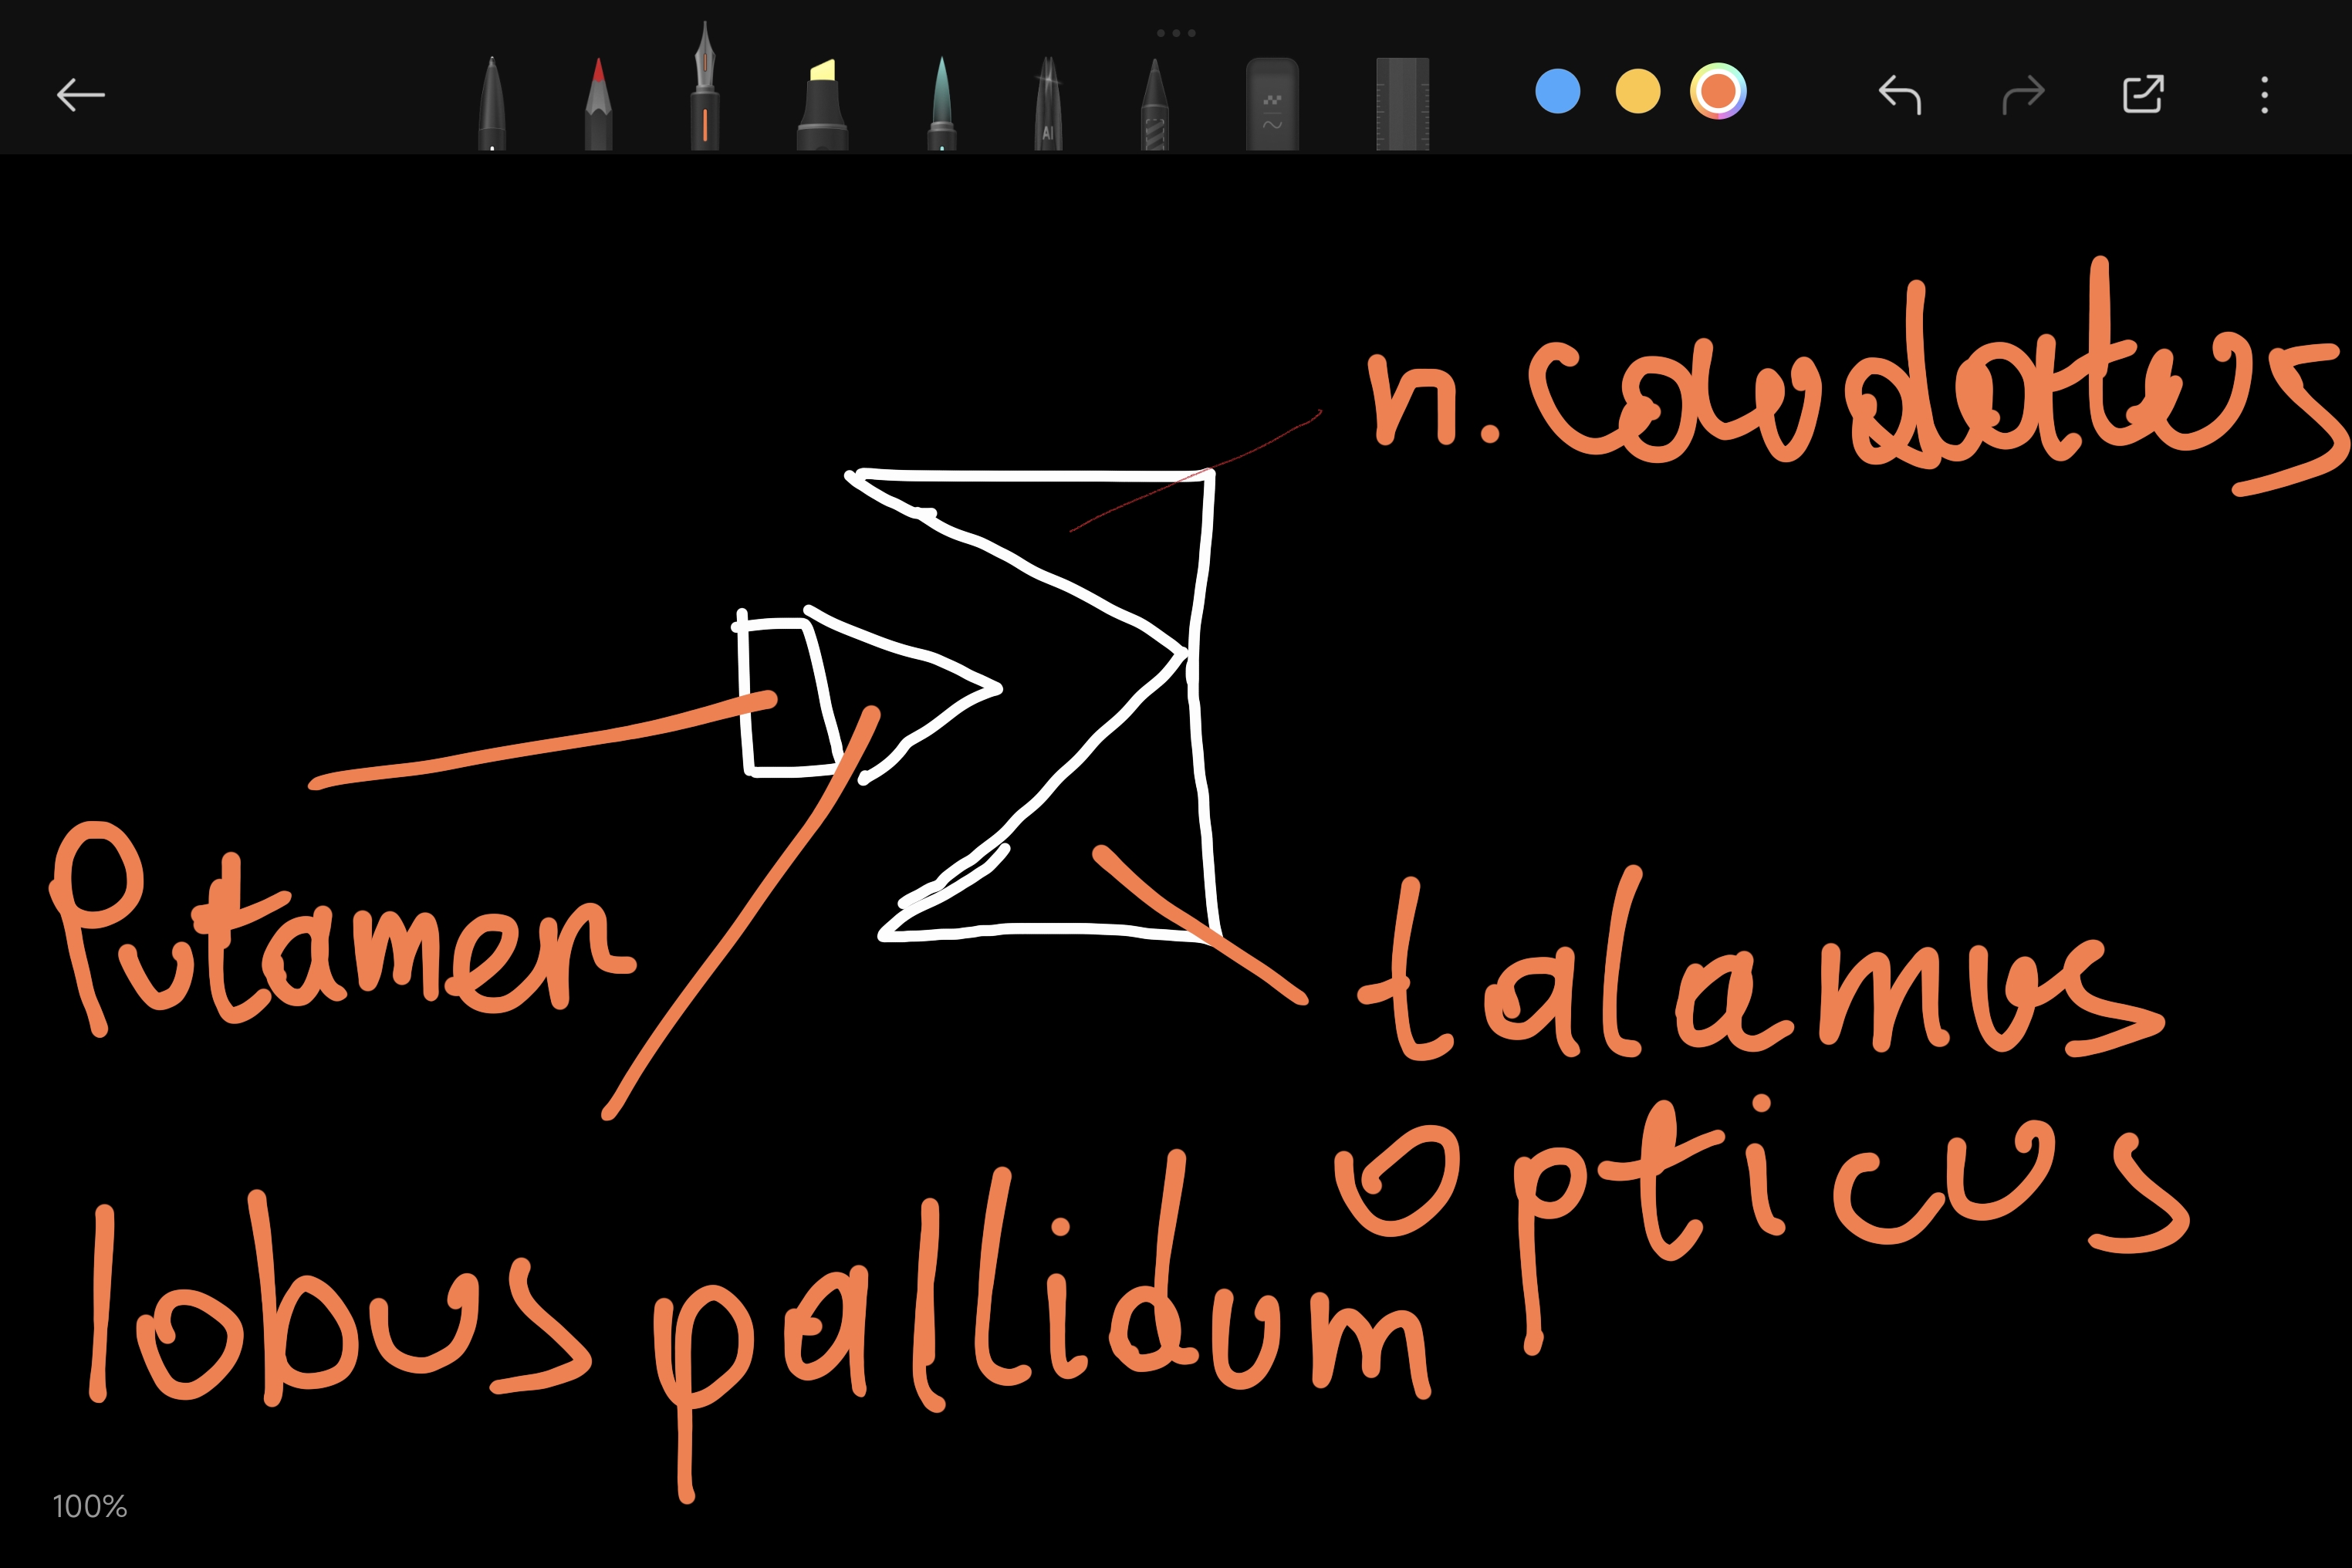 AI
n. caudatus
Putamen
talamus
opticus
lobus pallidum
100%